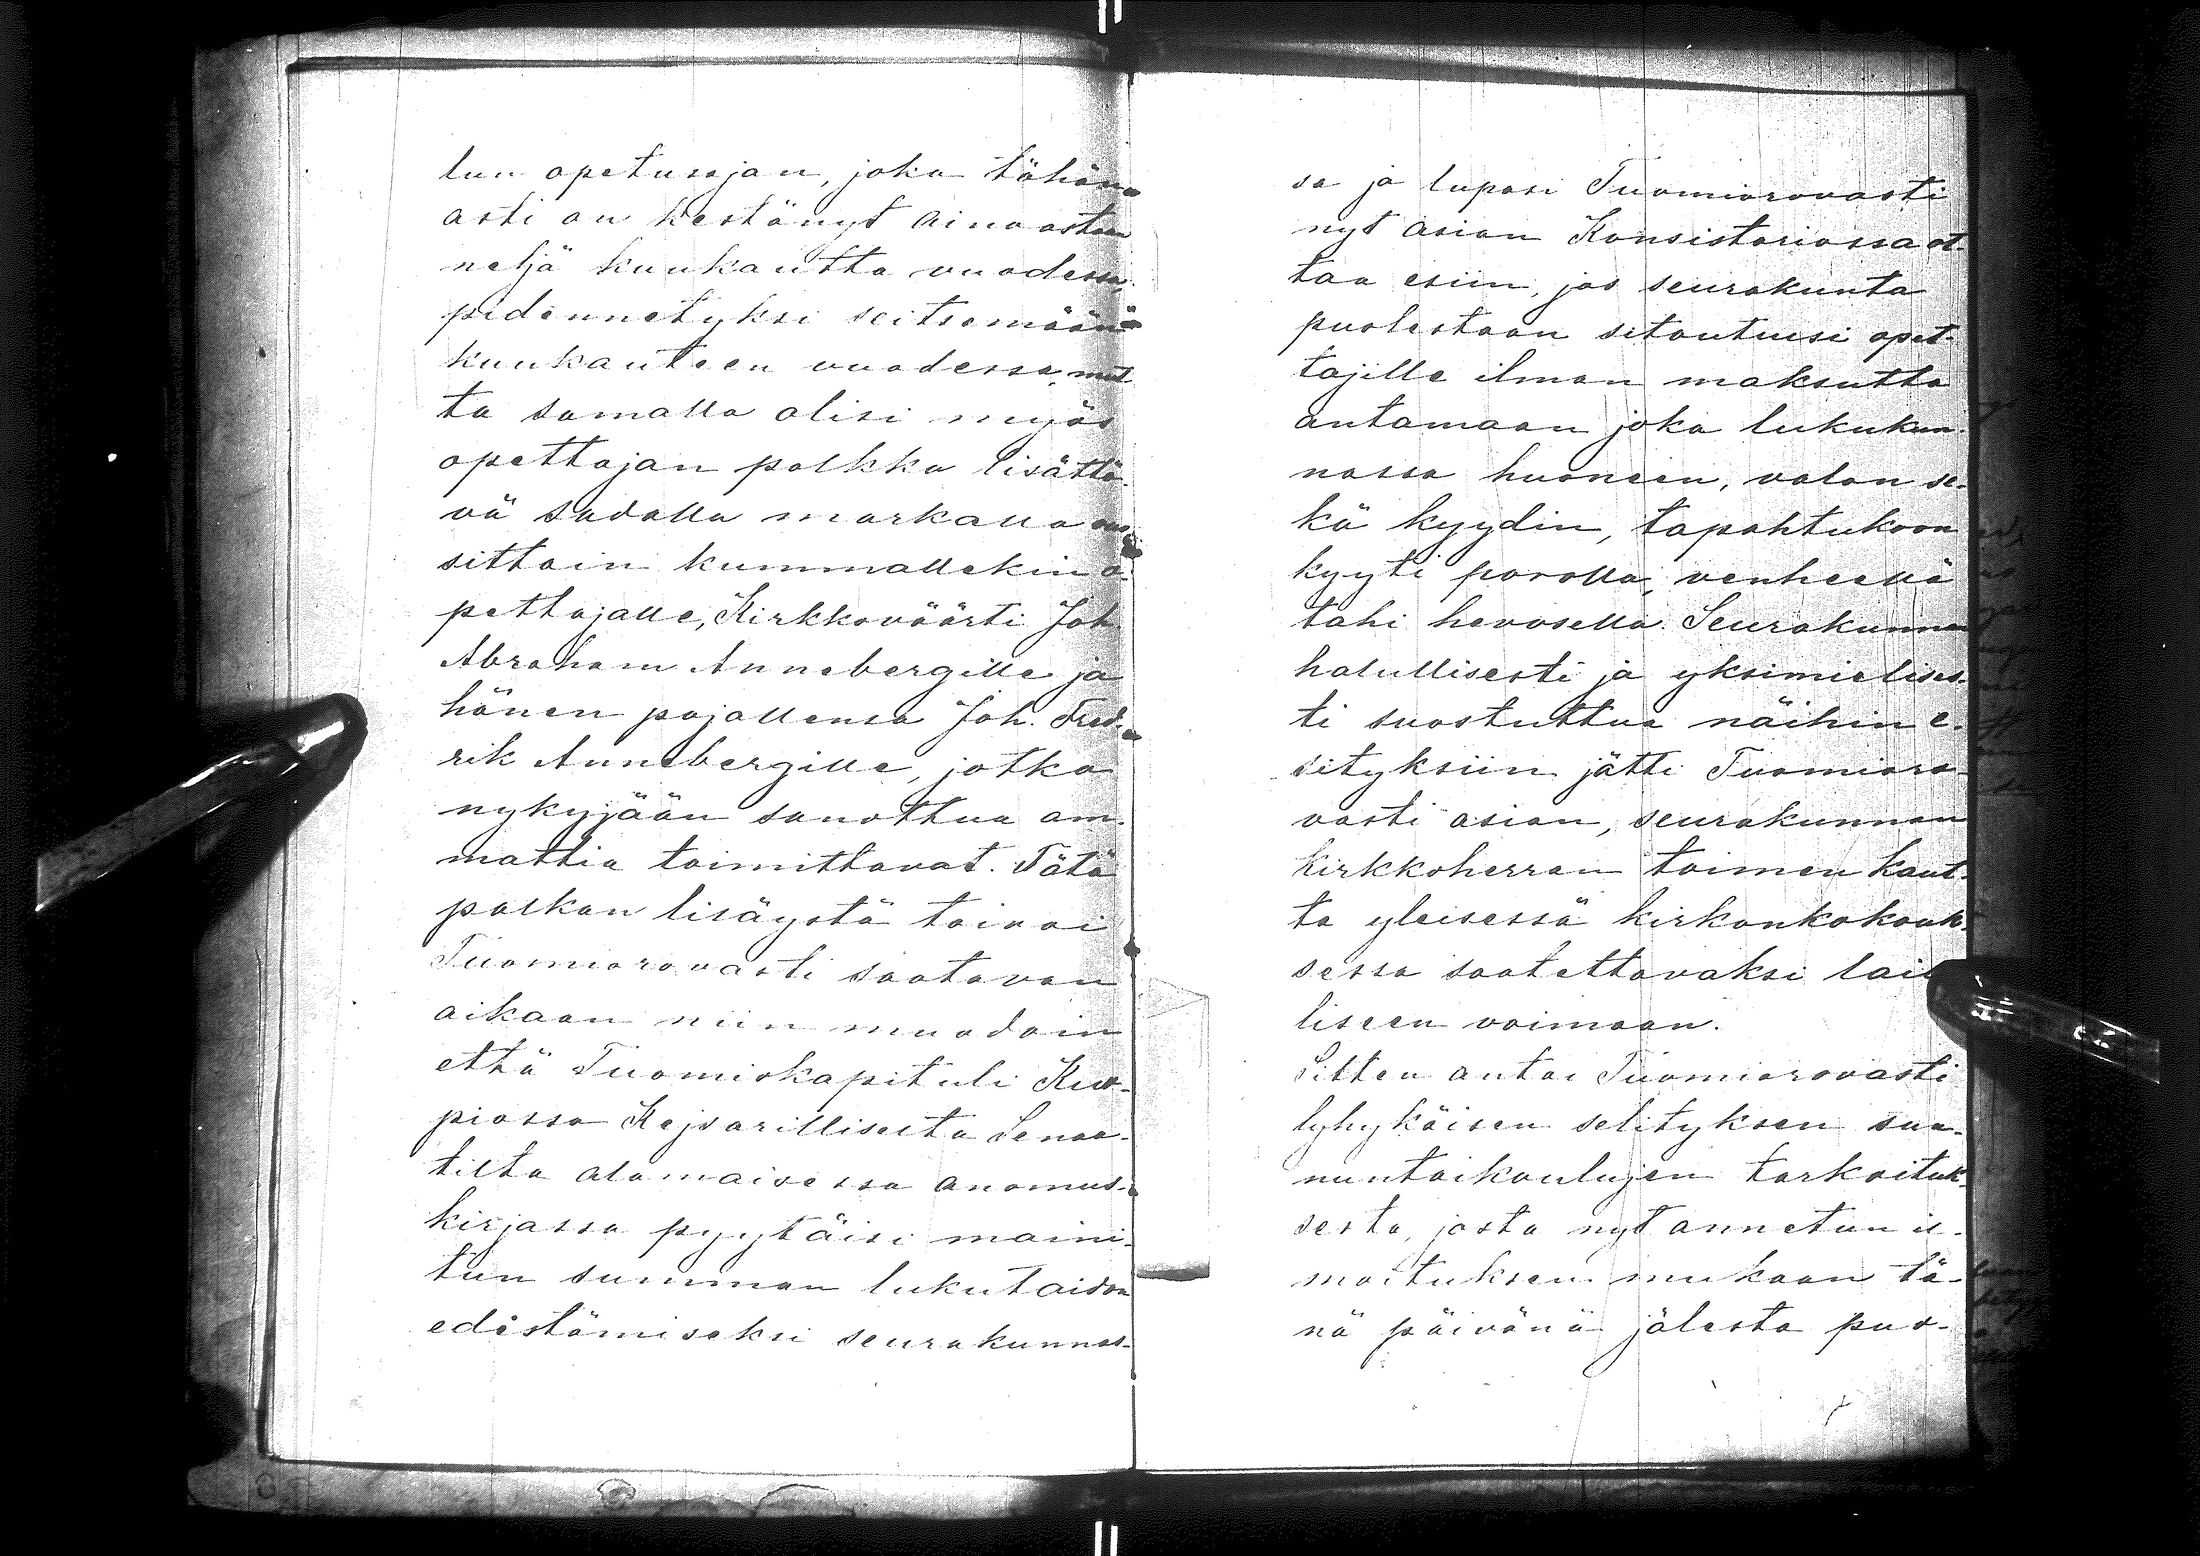 lun opetusajan, joka tähän
asti on kestänyt ainoastaan
neljä kuukautta vuodessa,
pidennetyksi seitsemään
kuukauteen vuodessa, mut
ta samalla olisi myös
opettajan palkka lisättä-
vä sadalla markalla vuo
sittain kummallekin o-
pettajalle, Kirkkoväärti Joh
Abraham Annebergille ja
hänen pojallensa Joh. Fred-
rik Annebergille, jotka
nykyjään sanottua am-
mattia toimittavat. Tätä
palkan lisäystä toivoi
Tuomiorovasti saatavan
aikaan niin muodoin
että Tuomiokapituli Kuo-
piossa Kejsarilliseita Senaa-
tilta alamaisessa anomus-
kirjassa pyytäisi maini-
tun summan lukutaidon
edistämiseksi seurakunnas-
sa ja lupasi Tuomiorovasti
nyt asian Konsistoriossa ot-
taa esiin, jos seurakunta
puolestaan sitoutuisi opet-
tajille ilman maksutta
antamaan joka lukukun-
nassa huoneen, valon se-
kä kyydin, tapahtukoon
kyyti porolla, venheellä
tahi hevosella. Seurakunnan
halullisesti ja yksimielises-
ti suostuttua näihin e-
sityksiin jätti Tuomioro-
vasti asian, seurakunnan
kirkkoherran toimen kaut-
ta yleisessä kirkonkokouk-
sessa saatettavaksi lail
liseen voimaan.
Sitten antoi Tuomiorovasti
lyhykäisen selityksen sun-
nuntaikoulujen tarkoituk-
sesta, josta nyt annetun il-
moituksen mukaan tä-
nä päivänä jälestä puo-